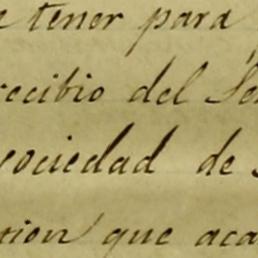 e tener para
recibio del Se
sociedad de
sion que aca